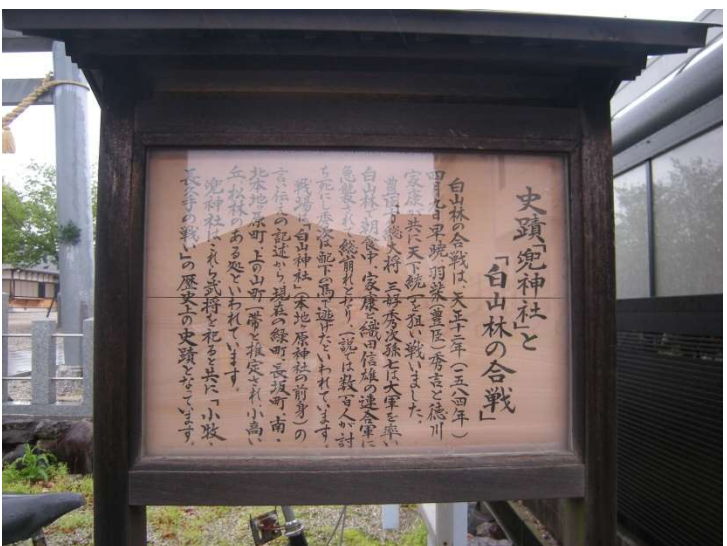 史蹟「兜神社」と
「白山林の合戦」
白山林の合戦は、天正十二年(一五八四年)
四月九日早暁、羽柴(豊臣)秀吉と徳川
家康が共に天下統一を狙い戦いました。
豊臣方総大将 三好秀次孫七は大軍を率い
白山林で朝食中、家康と織田信雄の連合軍に
急襲され、総崩れとなり(一説では数百人が討
ち死に)秀次は配下の馬で逃げたといわれています。
戦場は「白山神社」(本地ヶ原神社の前身)の
言い伝えの記述から、現在の緑町・長坂町・南・
北本地ヶ原町・上の山町一帯と推定され、小高い
丘、松林のある処といわれています。
兜神社は、これら武将を祀ると共に「小牧・
長久手の戦い」の歴史上の史蹟となっています。